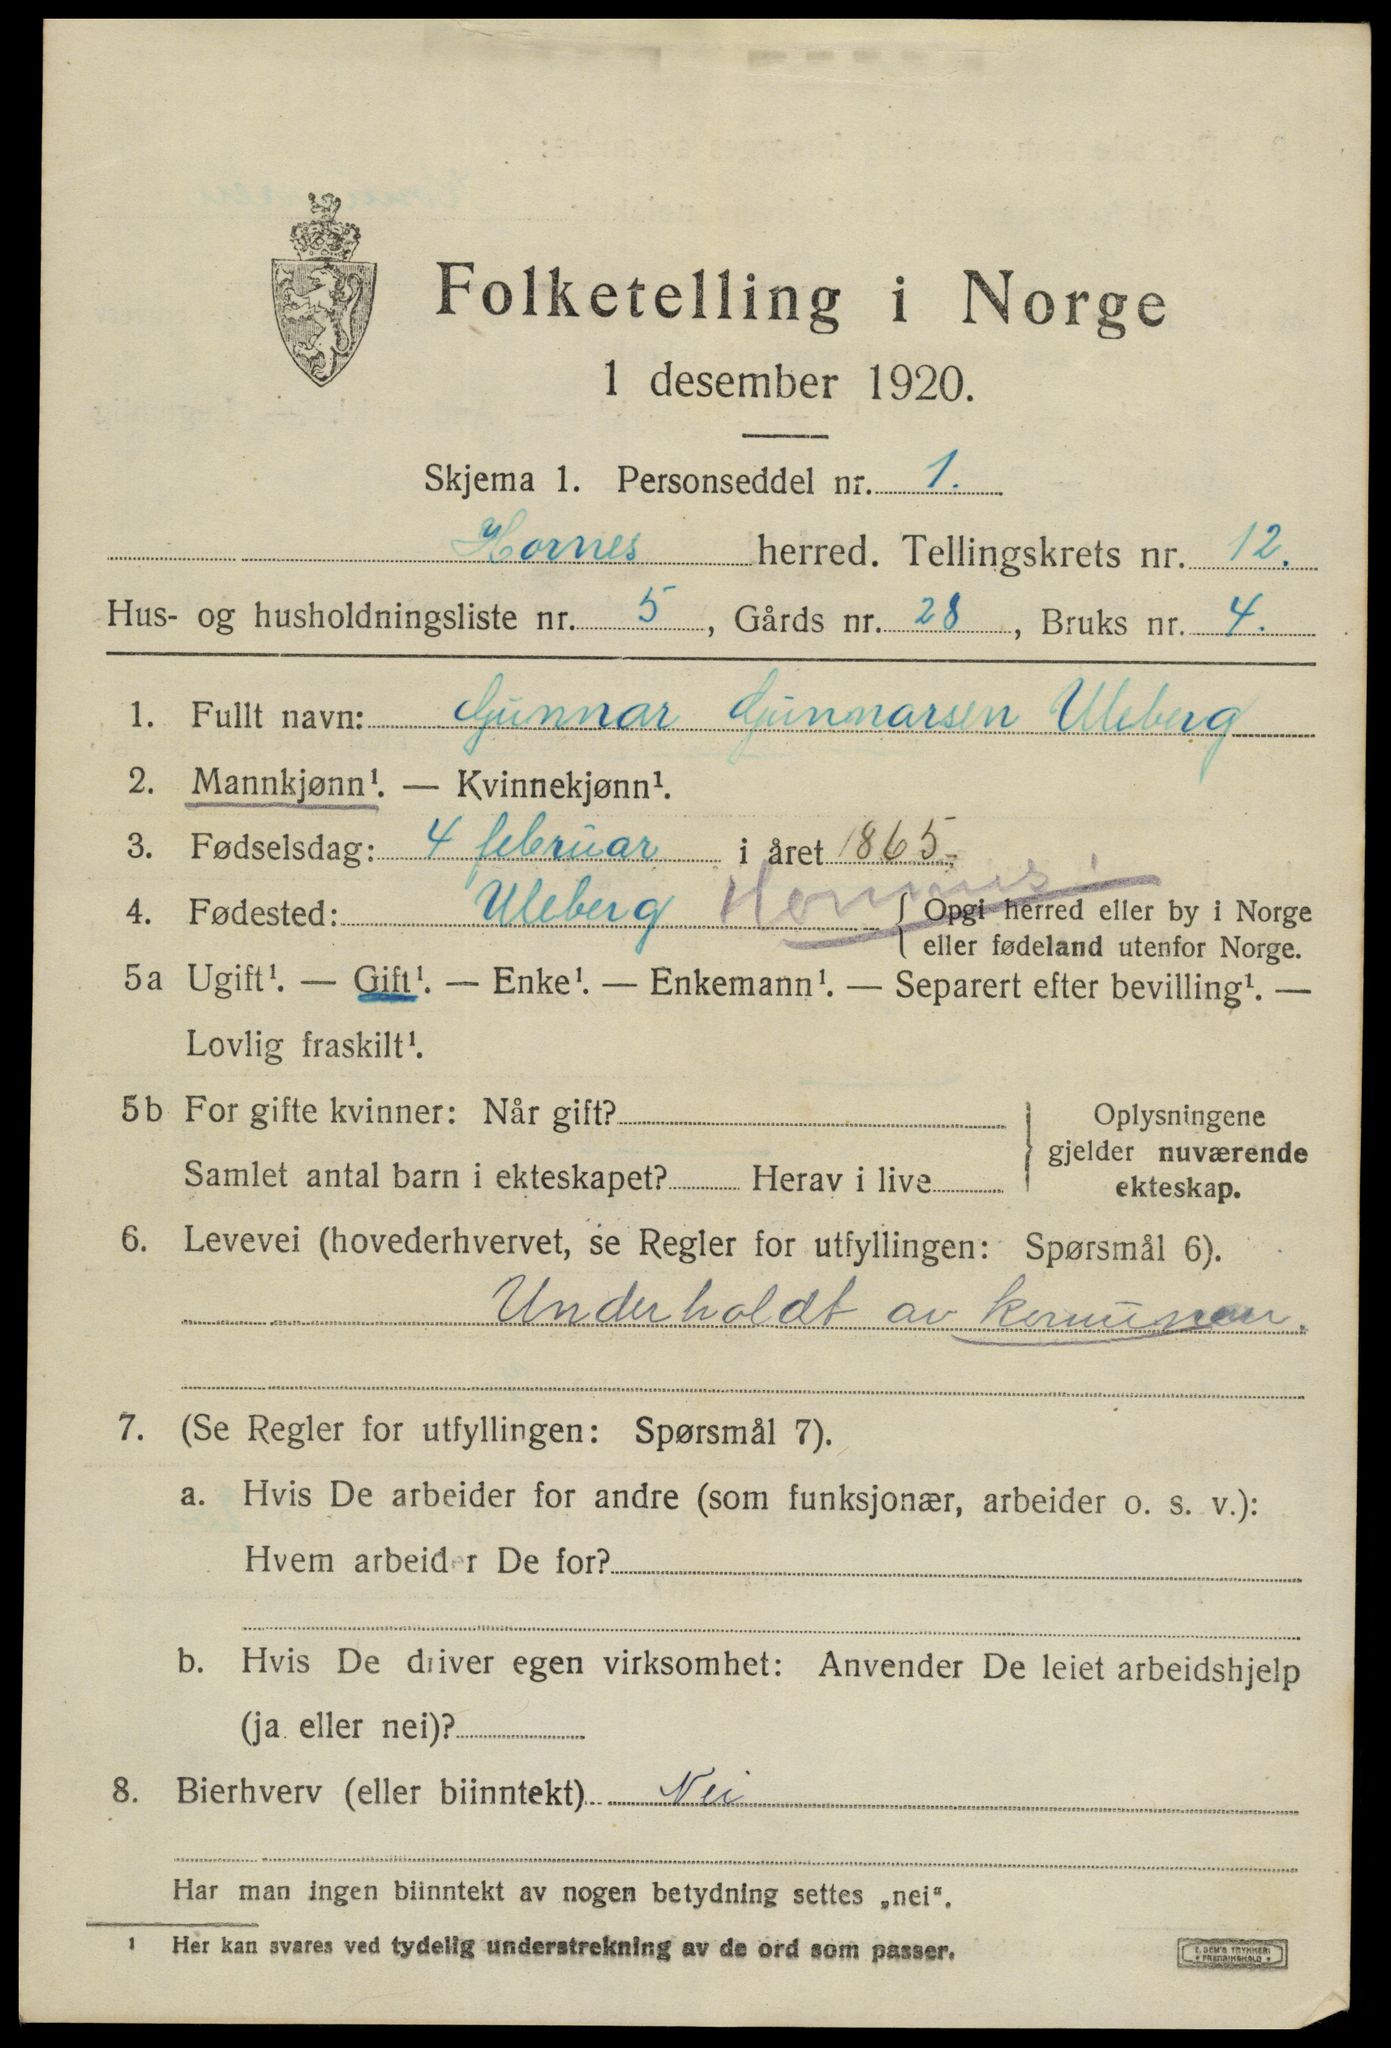 Folketelling i Norge
1 desember 1920.
Skjema 1. Personseddel nr. 1.
Hornes herred. Tellingskrets nr. 12.
Hus- og husholdningsliste nr. 5, Gårds nr. 28, Bruks nr. 4.
1. Fullt navn: Gunnar Gunnarsen Uleberg
2. Mannkjønn¹. — Kvinnekjønn¹.
3. Fødselsdag: 4 februar i året 1865.
4. Fødested: Uleberg Hornnes { Opgi herred eller by i Norge
eller fødeland utenfor Norge.
5a Ugift¹. — Gift¹. — Enke¹. — Enkemann¹. — Separert efter bevilling¹. —
Lovlig fraskilt¹.
5b For gifte kvinner: Når gift?
Samlet antal barn i ekteskapet? Herav i live
Oplysningene
gjelder nuværende
ekteskap.
6. Levevei (hovederhvervet, se Regler for utfyllingen: Spørsmål 6).
Underholdt av
7. (Se Regler for utfyllingen: Spørsmål 7).
a. Hvis De arbeider for andre (som funksjonær, arbeider o. s. v.):
Hvem arbeider De for?
b. Hvis De driver egen virksomhet: Anvender De leiet arbeidshjelp
(ja eller nei)?
8. Bierhverv (eller biinntekt) Nei
Har man ingen biinntekt av nogen betydning settes „nei“.
¹ Her kan svares ved tydelig understrekning av de ord som passer.
E. SEM'S TRYKKERI
FREDRIKSHALD